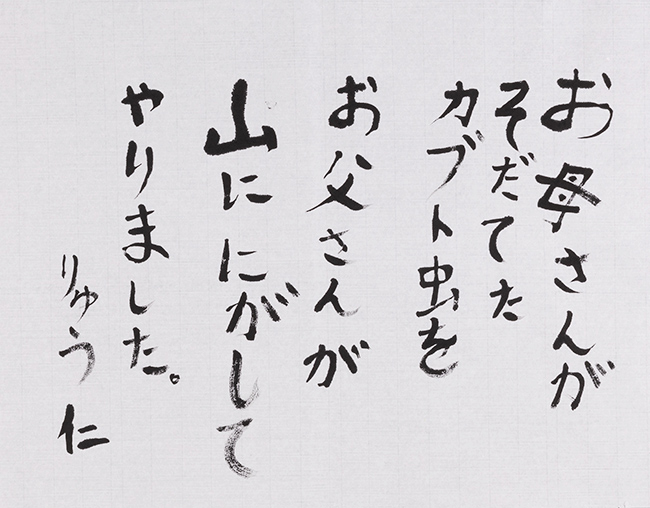 お母さんが
そだてた
カブト虫を
お父さんが
山ににがして
やりました。
りゅう仁